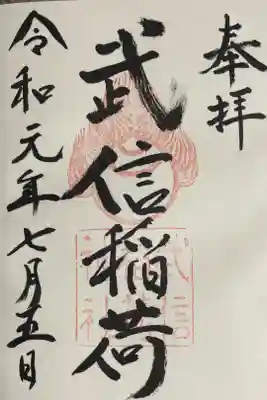 奉拝
武信稲荷
令和元年七月五日